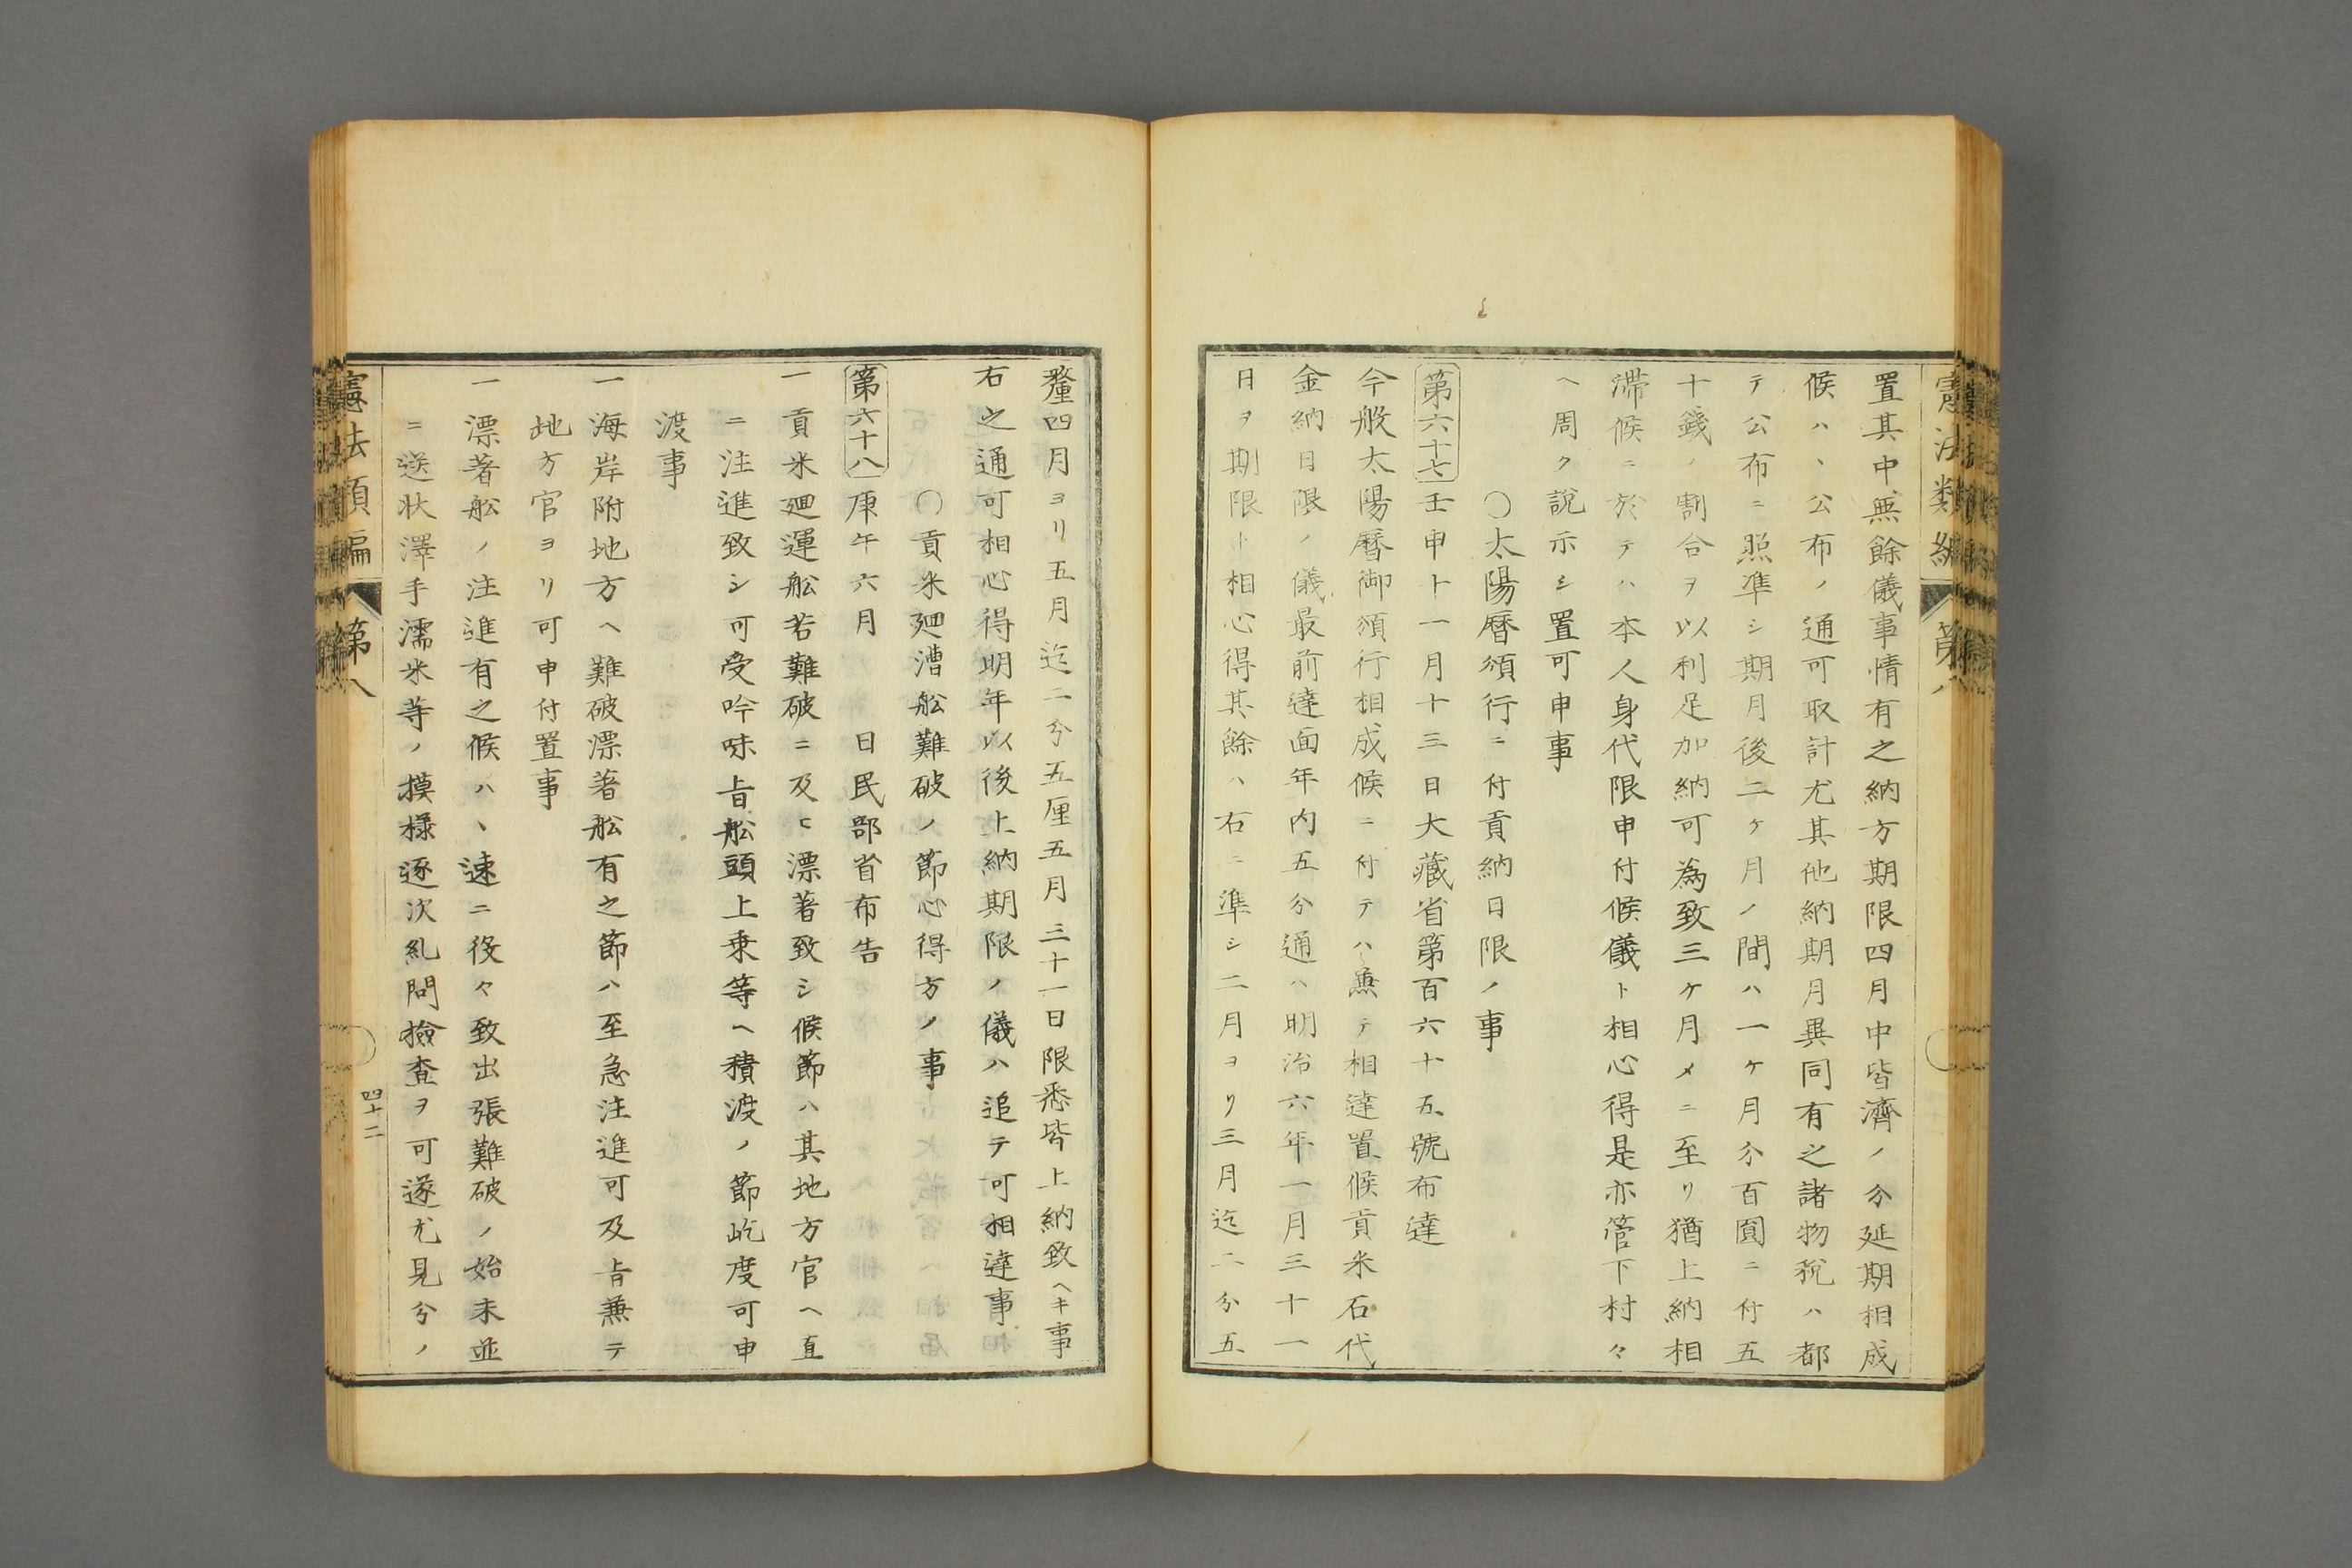 憲法類編 第八
置其中無餘儀事情有之納方期限四月中皆濟ノ分延期相成
候ハヽ公布ノ通可取計尤其他納期月異同有之諸物税ハ都
テ公布ニ照準シ期月後二ケ月ノ間ハ一ケ月分百圓ニ付五
十錢ノ割合ヲ以利足加納可為致三ケ月メニ至リ猶上納相
滞候ニ於テハ本人身代限申付候儀ト相心得是亦管下村々
ヘ周ク説示シ置可申事
〇太陽暦頒行ニ付貢納日限ノ事
第六十七 壬申十一月十三日大藏省第百六十五號布達
今般太陽暦御頒行相成候ニ付テハ兼テ相達置候貢米石代
金納日限ノ儀最前達面年内五分通ハ明治六年一月三十一
日ヲ期限ト相心得其餘ハ右ニ準シ二月ヨリ三月迄二分五
釐四月ヨリ五月迄二分五厘五月三十一日限悉皆上納致ヘキ事
右之通可相心得明年以後上納期限ノ儀ハ追テ可相達事
〇貢米廻漕舩難破ノ節心得方ノ事
第六十八 庚午六月 日民部省布告
一貢米廻運舩若難破ニ及ヒ漂著致シ候節ハ其地方官ヘ直
ニ注進致シ可受吟味旨舩頭上乗等ヘ積渡ノ節屹度可申
渡事
一海岸附地方ヘ難破漂著舩有之節ハ至急注進可及旨兼テ
地方官ヨリ可申付置事
一漂著舩ノ注進有之候ハヽ速ニ役々致出張難破ノ始末並
ニ送状澤手濡米等ノ摸樣逐次糺問撿査ヲ可遂尤見分ノ
憲法類編 第八
四十二